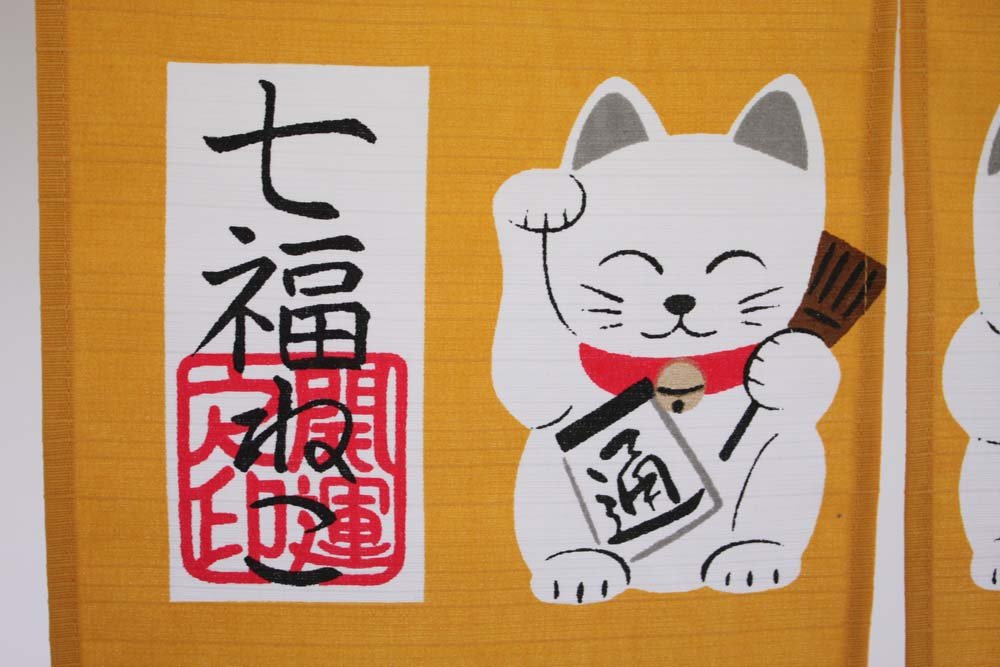 七福ねこ
開運
之印
通